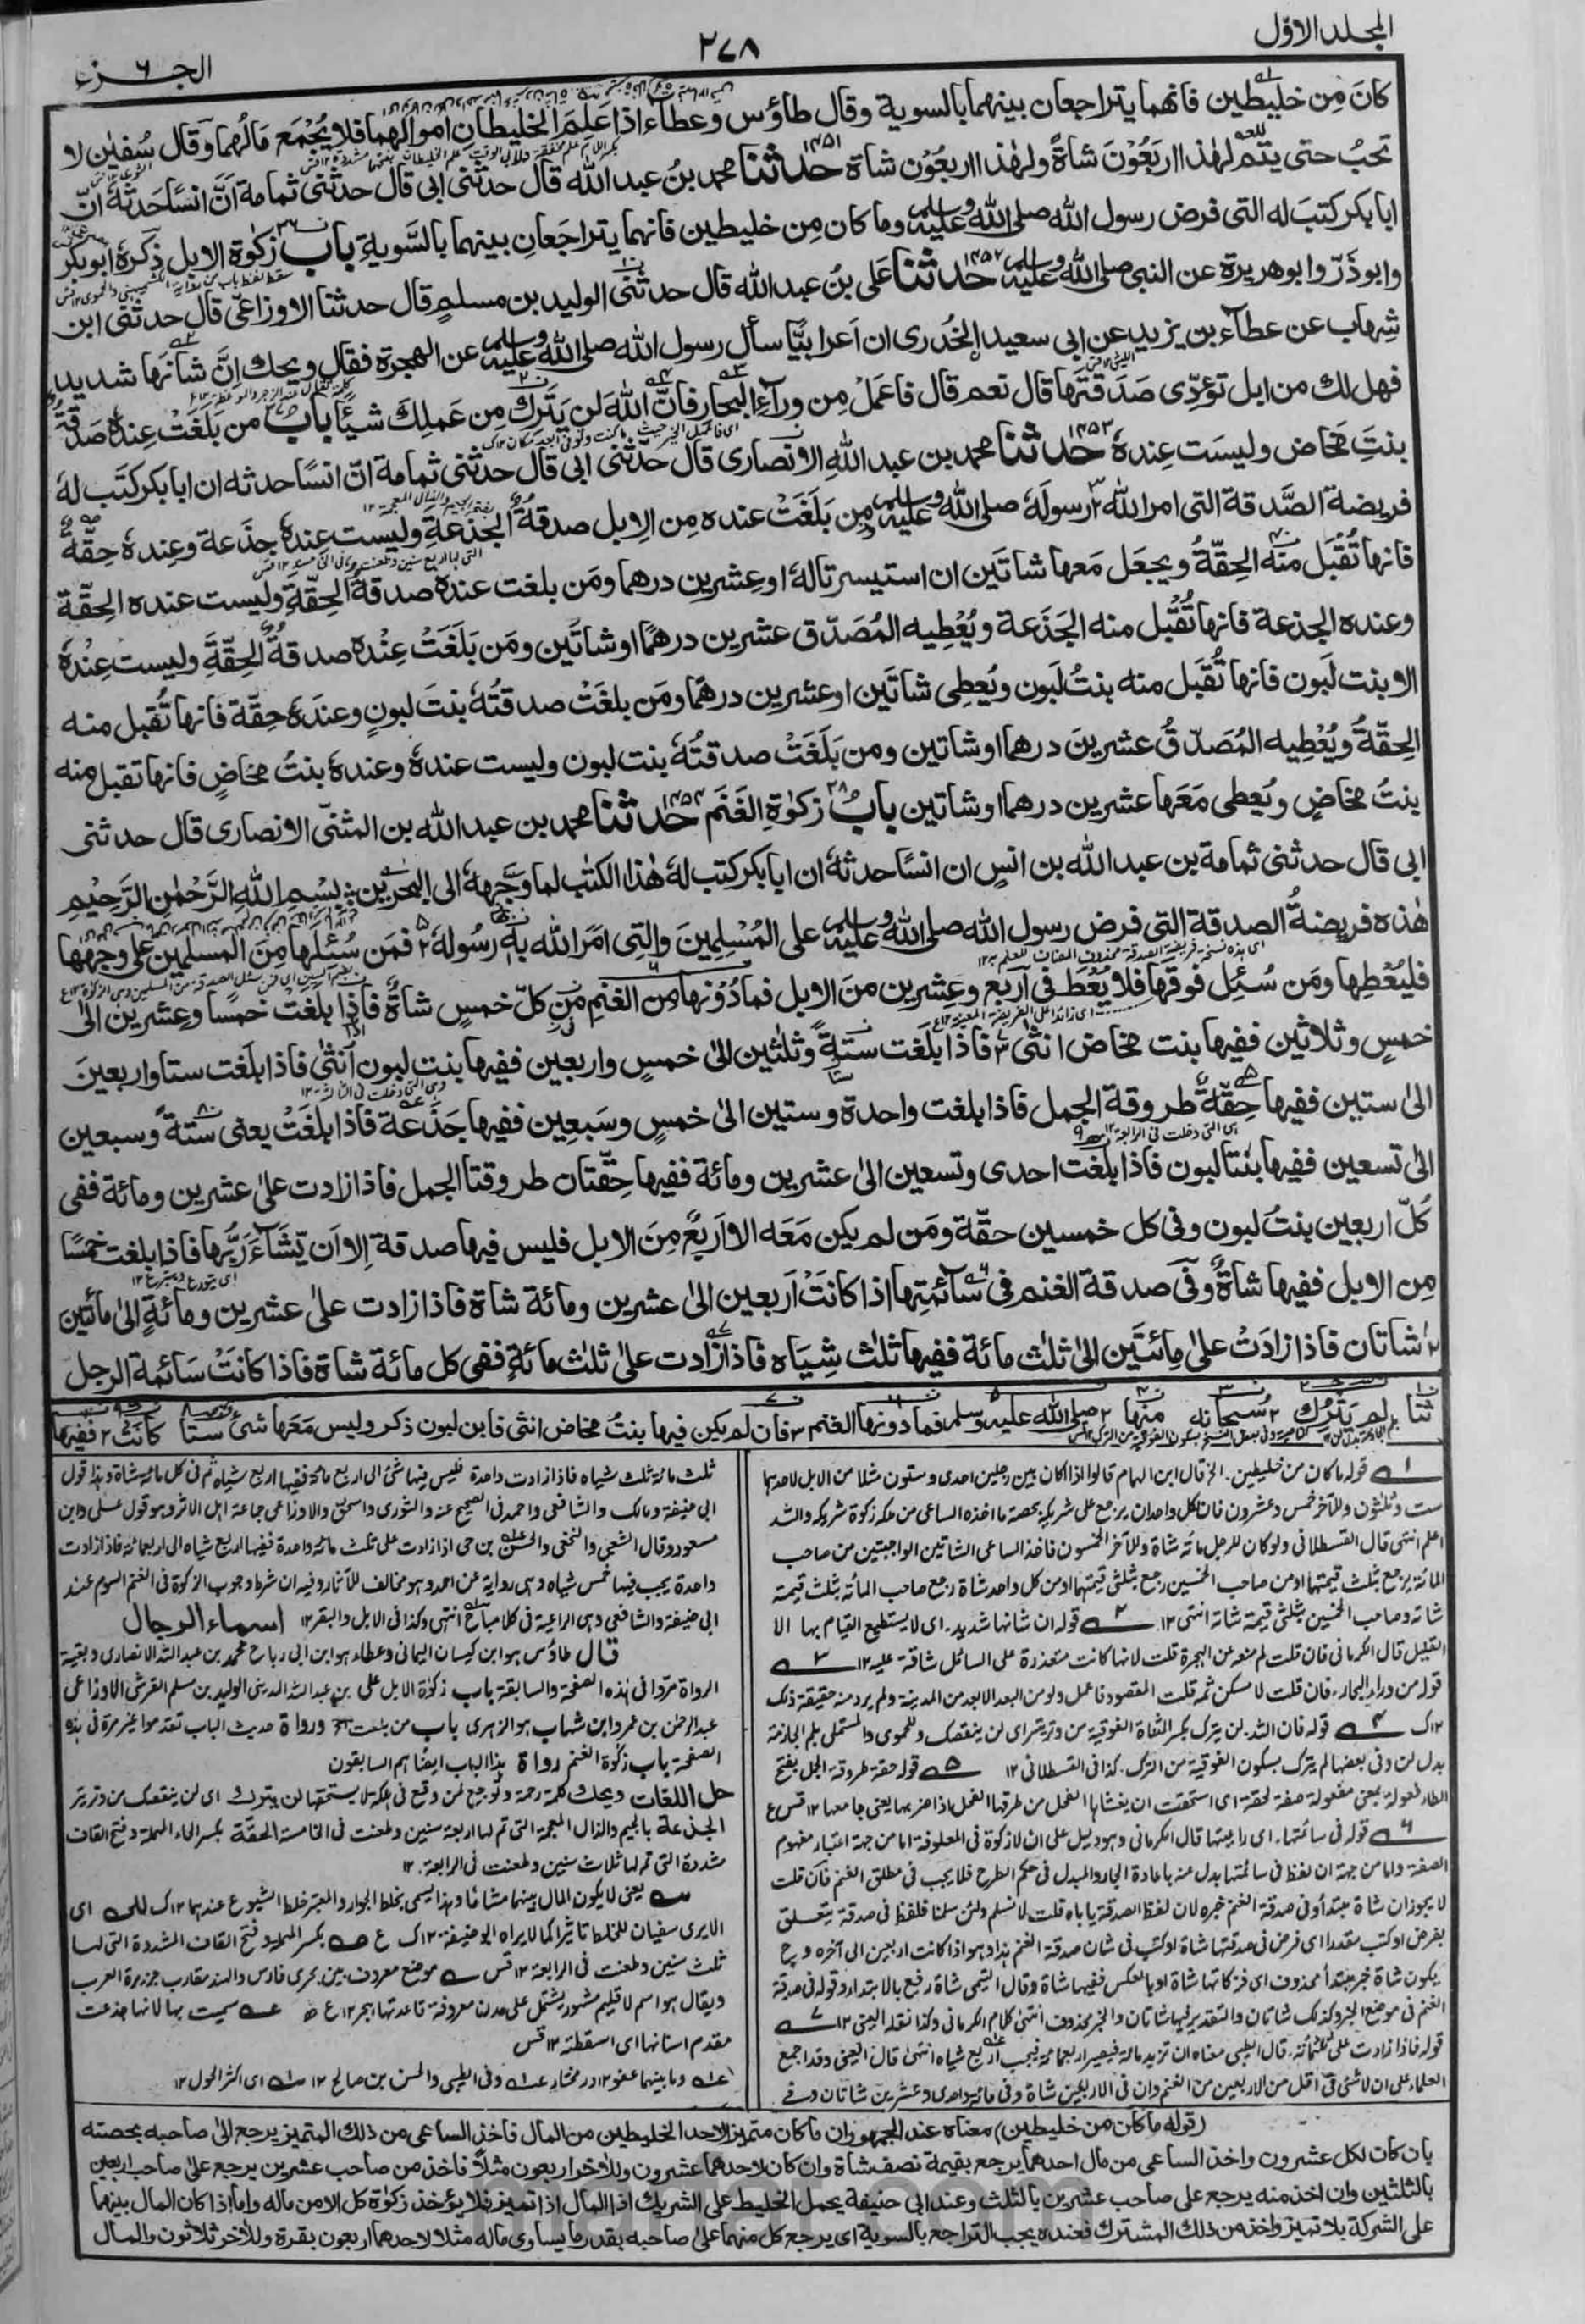 المجلد الاوّل
٢٧٨
الجزء ٦
كانَ مِن خليطين فانهما يتراجعان بينهما بالسوية وقال طاؤس وعطاء اذا عَلِمَ الخليطانِ اموالهما فلا يُجْمَع مَالُهما وقال سُفيٰن لا
تجبُ حتى يتم لهٰذا اربَعُوْنَ شاةً ولهٰذا اربعُوْن شاة ١٤٥١ حدثنا محمد بنُ عبد الله قال حدثنى ابى قال حدثنى ثمامة اَنَّ انسًا حَدثهٗ انّ
ابا بكر كتبَ له التى فرض رسول الله صلى الله عليه وسلم وما كان مِن خليطين فانهما يتراجَعانِ بينهما بالسَّوية باب ٣٦ زكٰوة الابل ذكرهٗ ابو بكر
وابو ذَرّ وابو هريرة عن النبى صلى الله عليه وسلم ١٤٥٢ حدثنا على بنُ عبد الله قال حدثنى الوليد بن مسلم قال حدثنا الاوزاعىّ قال حدثنى ابن
شِهاب عن عطاء بن يزيد عن ابى سعيد الخُدرى ان اَعرابيًّا سأل رسول الله صلى الله عليه وسلم عن الهجرة فقال ويحك اِنَّ شانَها شديد
فهل لك من ابل تؤدّى صَدَقتَها قال نعم قال فاعمَلْ مِن ورآءِ البحار فانَّ اللهَ لن يَتِرَكَ مِن عَمَلِكَ شيئًا باب ٣٧ من بَلَغَتْ عِندهٗ صَدقةُ
بنتِ مَخاض وليسَت عِندهٗ ١٤٥٣ حدثنا محمد بن عبد اللهِ الانصارى قال حدثنى ابى قال حدثنى ثمامة انّ انسًا حدثه ان ابا بكر كتَب لهٗ
فريضة الصَّدقة التى امر الله رسولَهٗ صلى الله عليه وسلم مِن بَلَغَتْ عنده مِن الاِبل صدقةُ الجذعةِ وليست عِندهٗ جذَعة وعِندهٗ حِقّةٌ
فانها تُقْبَل منه الحِقّةُ ويجعَل مَعها شاتَين ان استيسرتا لهٗ او عِشرين درهما ومَن بلغت عندهٗ صدقةُ الحِقّةِ وليست عنده الحِقّة
وعنده الجذعة فانها تُقْبَل منه الجَذَعة ويُعْطِيه المُصَدّق عشرين درهمًا او شاتَين ومَن بَلَغَتْ عِنْدهٗ صدقةُ الحِقّةِ وليست عِنْدهٗ
الا بنت لَبون فانها تُقبَل منه بنتُ لَبون ويُعطِى شاتَين او عشرين درهمًا ومَن بلغَتْ صدقتُهٗ بنتَ لبونٍ وعندَهٗ حِقّة فانها تُقبل منه
الحِقّةُ ويُعْطِيه المُصَدّقُ عشرينَ درهما او شاتين ومن بَلَغَتْ صدقتُهٗ بنت لبون وليست عندهٗ وعندهٗ بنتُ مخاضٍ فانها تقبل منه
بنتُ مخاضٍ ويُعطى مَعَها عشرين درهما او شاتين بابُ ٣٨ زكٰوةِ الغَنَم ١٤٥٤ حدثنا محمد بن عبد الله بن المثنّى الانصارى قال حدثنى
ابى قال حدثنى ثمامة بن عبد الله بن انسٍ ان انسًا حدثهٗ ان ابا بكر كتب لهٗ هٰذا الكتٰب لما وَجّههٗ الى البحرين بِسْمِ اللهِ الرَّحْمٰنِ الرَّحِيْمِ
هٰذه فريضةُ الصدقة التى فرض رسول الله صلى الله عليه وسلم على المُسْلِمِينَ والتِى امَرَ الله بهٖ رسُولهٗ فمَن سُئلَها مِنَ المسلمين على وجهها
فليُعْطِها ومَن سُئِل فوقَها فلا يُعْطِ فى اَربع وعِشرين مِنَ الابل فما دُوْنَها مِن الغنمِ مِن كلّ خمسٍ شاةٌ فاذا بلغت خمسا وعِشرين الىٰ
خمسٍ وثلاثين ففيها بنت مخاض انثٰى فاذا بَلَغت ستةً وثلٰثين الىٰ خمسٍ واربعين ففيها بنت لبون اُنثٰى فاذا بلَغت ستا واربعينَ
الىٰ ستين ففيها حِقّةٌ طروقة الجمل فاذا بلغت واحدة وستين الىٰ خمسٍ وسَبعِين ففيها جَذَعة فاذا بلغَتْ يعنى ستةً وسبعين
الىٰ تسعين ففيها بنتا لبون فاذا بلَغت احدى وتسعين الىٰ عشرين ومائة ففيها حِقّتان طروقتا الجمل فاذا زادت علىٰ عشرين ومائة ففى
كُلّ اربعين بنتُ لبون وفى كل خمسين حقّة ومَن لم يكن مَعَه الا اَربَعٌ مِنَ الابل فليس فيها صدقة اِلا اَن يّشَآءَ رَبُّها فاذا بلغت خمسًا
مِن الابل ففيها شاةٌ وفى صدقة الغنم فى سَائمتِها اذا كانَتْ اَربعين الىٰ عشرين ومائة شاة فاذا زادت علىٰ عشرين ومائةٍ الىٰ مائتين
شاتان فاذا زادَتْ علىٰ مِائتَين الىٰ ثلٰث مائة ففيها ثلٰث شِيَاه فاذا زادت علىٰ ثلٰث مائةٍ ففى كل مائة شاة فاذا كانَتْ سَائمة الرجل
ثنا لم يَتْرُك سُبحانه منها صلى الله عليه وسلم فما دونها الغنم فان لم يكن فيها بنتُ مخاض انثى فابن لبون ذكر وليس مَعَها شئ ستا كانَتْ ففيها
قوله ما كان من خليطين. الخ قال ابن الهمام قالوا اذا كان بين رجلين احدى وستون مثلا من الابل لاحدهما
ست وثلثون وللآخر خمس وعشرون فان كل واحد ان يرجع على شريكه بحصة ما اخذه الساعى من ملكه زكوة شريكه والله
اعلم انتهى قال القسطلانى ولو كان للرجل مائة شاة وللآخر الخمسون فاخذ الساعى الشاتين الواجبتين من صاحب
المائة يرجع بثلث قيمتها او من صاحب الخمسين رجع بثلثى قيمتها او من كل واحد شاة رجع صاحب المائة بثلث قيمة
شاته وصاحب الخمسين بثلثى قيمة شاته انتهى ١٢ قوله ان شانها شديد. اى لا يستطيع القيام بها الا
القليل قال الكرمانى فان قلت لم منعه عن الهجرة قلت لانها كانت متعذرة على السائل شاقة عليه ١٢
قوله من وراء البحار. فان قلت لا مسكن ثمه قلت المقصود فاعمل ولو من البعد الابعد من المدينة ولم يرد منه حقيقة ذلك
١٢ك قوله فان الله لن يترك بكسر التاء الفوقية من وتر يتر اى لن ينقصك وللحموى والمستملى بلم الجازمة
بدل لن وفى بعضها لم يترك بسكون الفوقية من الترك. كذا فى القسطلانى ١٢ قوله حقة طروقة الجمل بفتح
الطاء فعولة بمعنى مفعولة صفة لحقة اى استحقت ان يغشاها الفحل من طرقها الفحل اذا ضربها يعنى جامعها ١٢ قس ع
قوله فى سائمتها. اى راعيتها قال الكرمانى وهو دليل على ان لا زكوة فى المعلوفة اما من جهة اعتبار مفهوم
الصفة واما من جهة ان لفظ فى سائمتها بدل عنه باعادة الجار والمبدل فى حكم الطرح فلا يجب فى مطلق الغنم فان قلت
لا يجوز ان شاة مبتدأ وفى صدقة الغنم خبره لان لفظ الصدقة ياباه قلت لا نسلم ولئن سلمنا فلفظ فى صدقة يتعلق
بفرض او كتب مقدرا اى فرض فى صدقتها شاة او كتب فى شان صدقة الغنم هذا وهو اذا كانت اربعين الى آخره وح
يكون شاة خبر مبتدأ محذوف اى فزكاتها شاة او بالعكس ففيها شاة وقال التيمى شاة رفع بالابتداء وقوله فى صدقة
الغنم فى موضع الخبر وكذلك شاتان والتقدير فيها شاتان والخبر محذوف انتهى كلام الكرمانى وكذا نقله العينى ١٢
قوله فاذا زادت على ثلثمائة. قال الطيبى معناه ان تزيد مائة فيصير اربعمائة فيجب اربع شياه انتهى قال العينى وقد اجمع
العلماء على ان لا شئ فى اقل من الاربعين من الغنم وان فى الاربعين شاة وفى مائة واحدى وعشرين شاتان وفى
ثلث مائة ثلث شياه فاذا زادت واحدة فليس فيها شئ الى اربع مائة ففيها اربع شياه ثم فى كل مائة شاة وهذا قول
ابى حنيفة ومالك والشافعى واحمد فى الصحيح عنه والثورى واسحق والاوزاعى جماعة اهل الاثر وهو قول على وابن
مسعود وقال الشعبى والنخعى والحسن بن حى اذا زادت على ثلث مائة واحدة ففيها اربع شياه الى اربعمائة فاذا زادت
واحدة يجب فيها خمس شياه وهى رواية عن احمد وهو مخالف للآثار وفيه ان شرط وجوب الزكوة فى الغنم السوم عند
ابى حنيفة والشافعى وهى الراعية فى كلأ مباح انتهى وكذا فى الابل والبقر ١٢ اسماء الرجال
قال طاؤس هو ابن كيسان اليمانى وعطاء هو ابن ابى رباح محمد بن عبد الله الانصارى وبقية
الرواة مرّوا فى هذه الصفحة والسابقة باب زكوة الابل على بن عبد الله المدينى الوليد بن مسلم القرشى الاوزاعى
عبد الرحمن بن عمرو ابن شهاب هو الزهرى باب من بلغت الخ ورواة حديث الباب تقدموا غير مرة فى هذه
الصفحة باب زكوة الغنم رواة هذا الباب ايضا هم السابقون
حل اللغات ويحك كلمة رحمة وتوجع لمن وقع فى هلكة لا يستحقها لن يترك اى لن ينقصك من وتر يتر
الجذعة بالجيم والذال المعجمة التى تم لها اربعة سنين وطعنت فى الخامسة الحقة بكسر الحاء المهملة وفتح القاف
مشددة التى تم لها ثلاث سنين وطعنت فى الرابعة. ١٢
يعنى لا يكون المال بينهما مشاعا وهذا يسمى بخلط الجوار والمعتبر خلط الشيوع عندهما ١٢ك اى
لا يرى سفيان للخلط تاثيرا كما لا يراه ابو حنيفة ١٢ك ع بكسر المهملة وفتح القاف المشددة التى لها
ثلث سنين وطعنت فى الرابعة ١٢ قس موضع معروف بين بحرى فارس والهند مقارب جزيرة العرب
ويقال هو اسم لاقليم مشهور يشتمل على مدن معروفة قاعدتها هجر ١٢ ع سميت بها لانها جذعت
مقدم اسنانها اى اسقطته ١٢ قس
وما بينهما عفو ١٢ در مختار وفى الطيبى والحسن بن صالح ١٢ اى اكثر الحول ١٢
(قوله ما كان من خليطين) معناه عند الجمهور ان ما كان متميزا لاحد الخليطين من المال فاخذ الساعى من ذلك المتميز يرجع الىٰ صاحبه بحصته
بان كان لكل عشرون واخذ الساعى من مال احدهما يرجع بقيمة نصف شاة وان كان لاحدهما عشرون وللآخر اربعون مثلًا فاخذ من صاحب عشرين يرجع علىٰ صاحب اربعين
بالثلثين وان اخذ منه يرجع على صاحب عشرين بالثلث وعند ابى حنيفة يحمل الخليط على الشريك اذ المال اذا تميز فلا يؤخذ زكٰوة كل الا من ماله واما اذا كان المال بينهما
على الشركة بلا تميز واخذ من ذلك المشترك فعنده يجب التراجع بالسوية اى يرجع كل منهما علىٰ صاحبه بقدر ما يساوى ماله مثلا لاحدهما اربعون بقرة وللآخر ثلاثون والمال